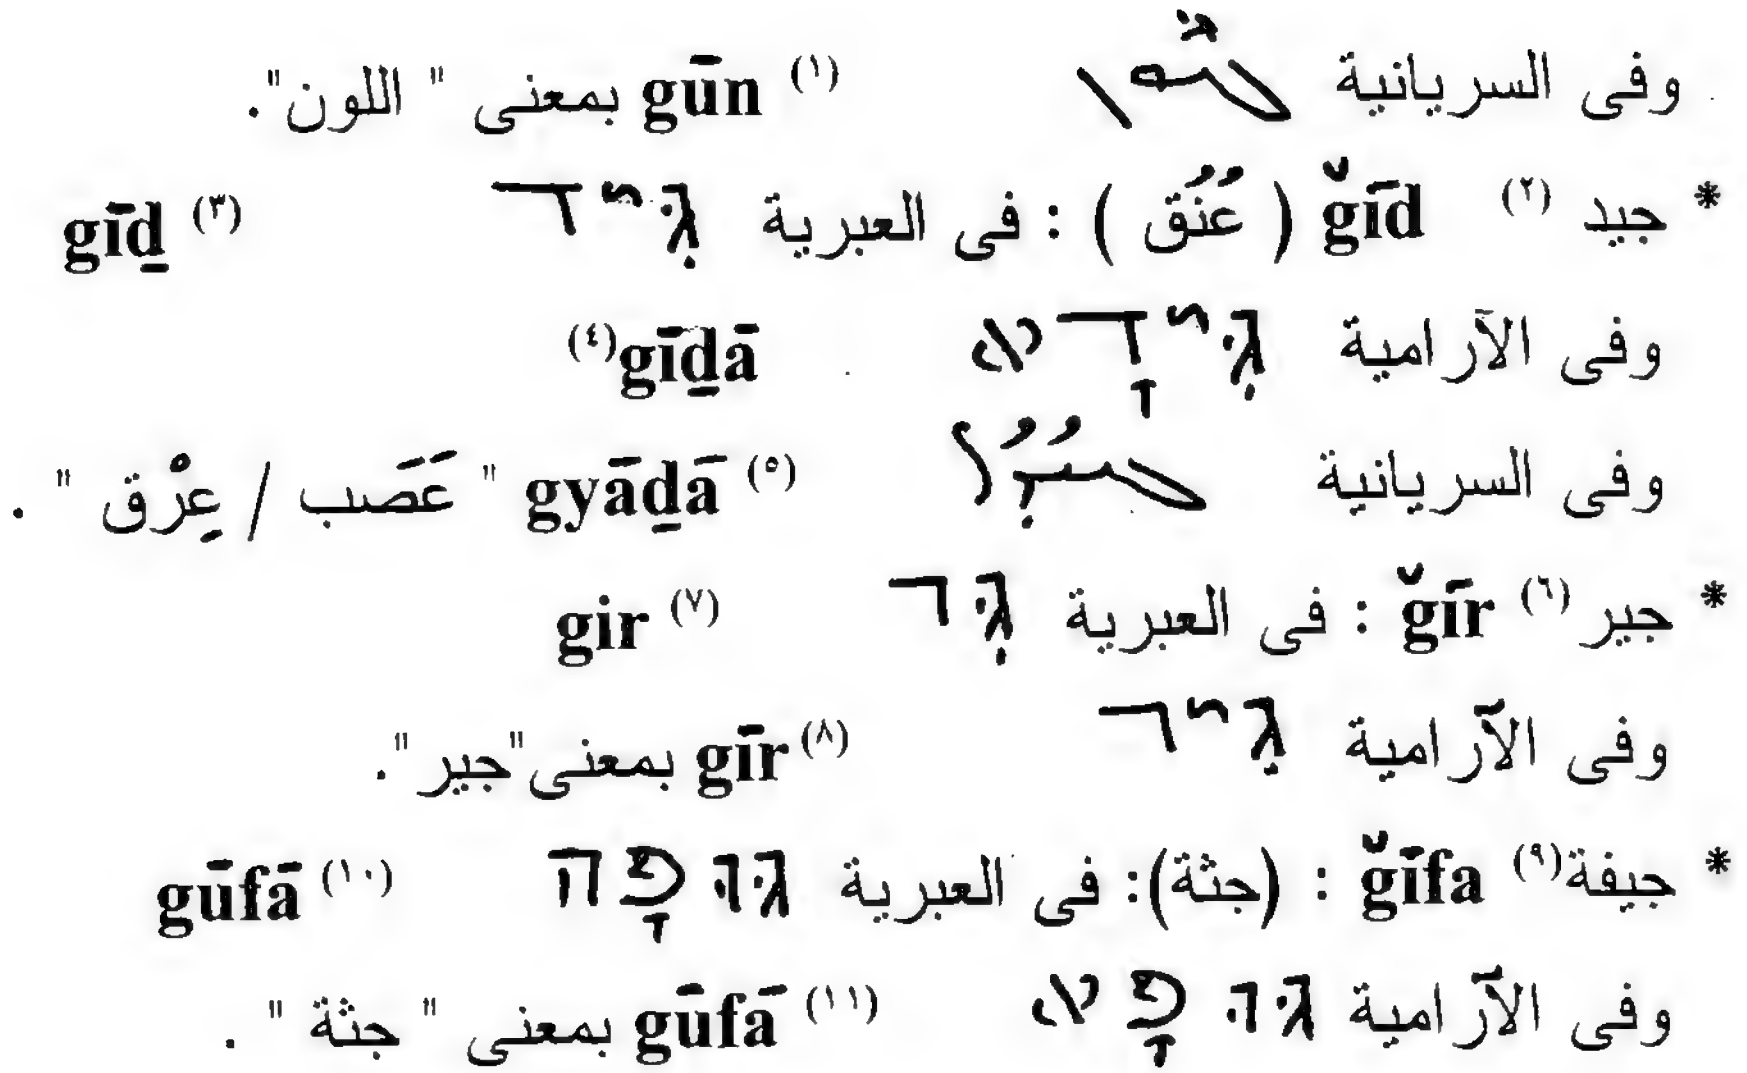 وفى السريانية ܓܘܢ (١) gūn بمعنى " اللون".
* جيد (٢) ğīd ( عُنُق ) : فى العبرية גִּיד (٣) gīḏ
وفى الآرامية גִּידָא gīḏā(٤)
وفى السريانية ܓܝܳܕܳܐ (٥) gyāḏā " عَصَب / عِرْق " .
* جير (٦) ğīr : فى العبرية גִּר (٧) gir
وفى الآرامية גִיר (٨) gīr بمعنى"جير".
* جيفة(٩) ğīfa : (جثة): فى العبرية גּוּפָה (١٠) gūfā
وفى الآرامية גּוּפָא (١١) gūfā بمعنى " جثة " .